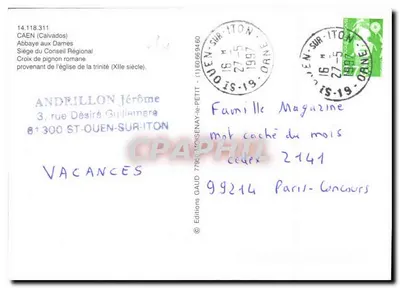 14.118.311
CAEN (Calvados)
Abbaye aux Dames
Siège du Conseil Régional
Croix de pignon romane
provenant de l'église de la trinité (XIIe siècle).
ANDRILLON Jérôme
3, rue Désiré
61300 ST-OUEN-SUR-ITON
VACANCES
© Editions GAUD
ST OUEN-SUR-ITON
16 H
27-5
1997
ORNE
ST OUEN-SUR-ITON
16 H
27-5
1997
ORNE
61-
CPAPHIL
Famille Magazine
mot caché du mois
cedex 2141
99214 Paris-Concours